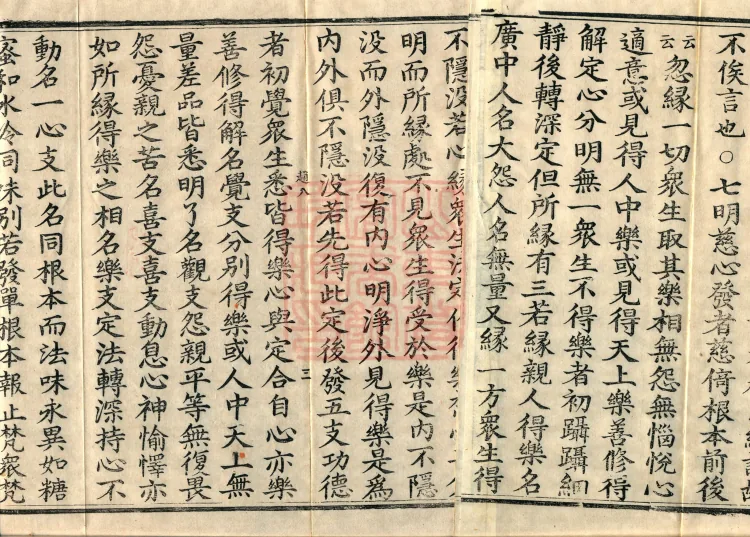 不俟言也○七明慈心發者慈倚根本前後
云云忽緣一切衆生取其樂相無怨無惱悅心
適意或見得人中樂或見得天上樂善修得
解定心分明無一衆生不得樂者初躡躡細
靜後轉深定但所緣有三若緣親人得樂名
廣中人名大怨人名無量又緣一方衆生得
不隱没若心緣衆生
明而所緣處不見衆生得受於樂是内不隱
没而外隱没復有内心明淨外見得樂是爲
内外俱不隱没若先得此定後發五支功德
趙八 三
者初覺衆生悉皆得樂心與定合自心亦樂
善修得解名覺支分別得樂或人中天上無
量差品皆悉明了名觀支怨親平等無復畏
怨憂親之苦名喜支喜支動息心神愉懌亦
如所緣得樂之相名樂支定法轉深持心不
動名一心支此名同根本而法味永異如糖
蜜和水冷同味別若發單根本報止梵衆梵